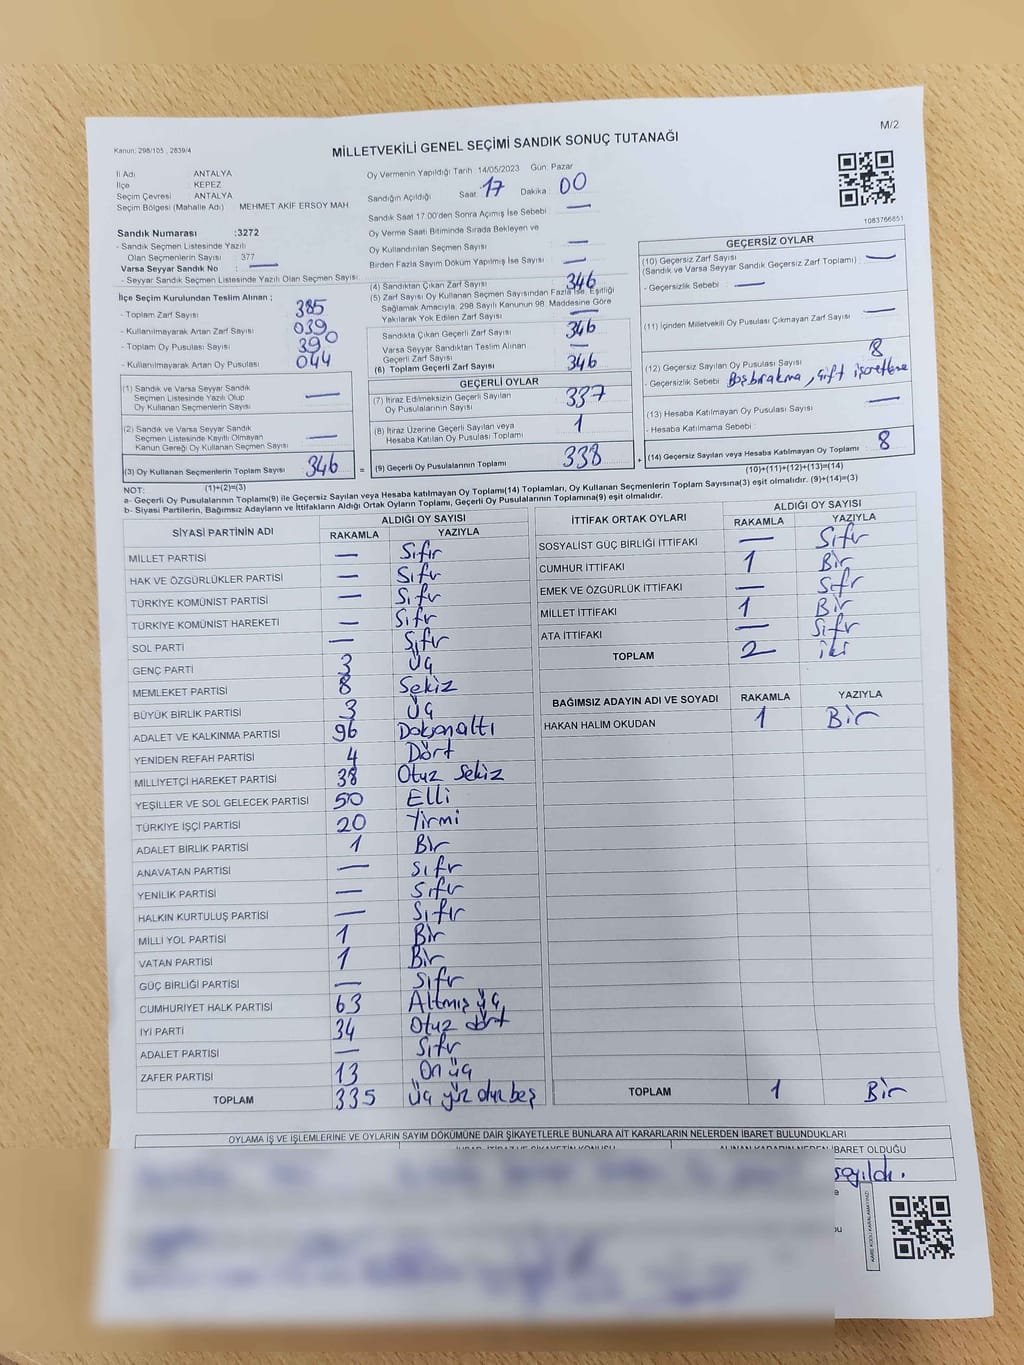 M/2
Kanun: 298/105 , 2839/4
MİLLETVEKİLİ GENEL SEÇİMİ SANDIK SONUÇ TUTANAĞI
İl Adı ANTALYA
İlçe KEPEZ
Seçim Çevresi ANTALYA
Seçim Bölgesi (Mahalle Adı) MEHMET AKİF ERSOY MAH
Sandık Numarası :3272
- Sandık Seçmen Listesinde Yazılı
Olan Seçmenlerin Sayısı : 377
Varsa Seyyar Sandık No : —
- Seyyar Sandık Seçmen Listesinde Yazılı Olan Seçmen Sayısı:
İlçe Seçim Kurulundan Teslim Alınan ;
- Toplam Zarf Sayısı : 385
- Kullanılmayarak Artan Zarf Sayısı : 039
- Toplam Oy Pusulası Sayısı : 390
- Kullanılmayarak Artan Oy Pusulası : 044
(1) Sandık ve Varsa Seyyar Sandık
Seçmen Listesinde Yazılı Olup
Oy Kullanan Seçmenlerin Sayısı : —
(2) Sandık ve Varsa Seyyar Sandık
Seçmen Listesinde Kayıtlı Olmayan
Kanun Gereği Oy Kullanan Seçmen Sayısı : —
(3) Oy Kullanan Seçmenlerin Toplam Sayısı : 346
(1)+(2)=(3)
Oy Vermenin Yapıldığı Tarih :14/05/2023 Gün: Pazar
Sandığın Açıldığı Saat: 17 Dakika : 00
Sandık Saat 17.00'den Sonra Açımış İse Sebebi : —
Oy Verme Saati Bitiminde Sırada Bekleyen ve
Oy Kullandırılan Seçmen Sayısı : —
Birden Fazla Sayım Döküm Yapılmış İse Sayısı : —
(4) Sandıktan Çıkan Zarf Sayısı : 346
(5) Zarf Sayısı Oy Kullanan Seçmen Sayısından Fazla İse, Eşitliği
Sağlamak Amacıyla, 298 Sayılı Kanunun 98. Maddesine Göre
Yakılarak Yok Edilen Zarf Sayısı : —
Sandıkta Çıkan Geçerli Zarf Sayısı : 346
Varsa Seyyar Sandıktan Teslim Alınan
Geçerli Zarf Sayısı : —
(6) Toplam Geçerli Zarf Sayısı : 346
GEÇERLİ OYLAR
(7) İtiraz Edilmeksizin Geçerli Sayılan
Oy Pusulalarının Sayısı : 337
(8) İtiraz Üzerine Geçerli Sayılan veya
Hesaba Katılan Oy Pusulası Toplamı : 1
= (9) Geçerli Oy Pusulalarının Toplamı : 338
1083766651
GEÇERSİZ OYLAR
(10) Geçersiz Zarf Sayısı
(Sandık ve Varsa Seyyar Sandık Geçersiz Zarf Toplamı) : —
- Geçersizlik Sebebi : —
(11) İçinden Milletvekili Oy Pusulası Çıkmayan Zarf Sayısı : —
(12) Geçersiz Sayılan Oy Pusulası Sayısı : 8
- Geçersizlik Sebebi : Boş bırakma, çift işaretleme
(13) Hesaba Katılmayan Oy Pusulası Sayısı : —
- Hesaba Katılmama Sebebi :
+ (14) Geçersiz Sayılan veya Hesaba Katılmayan Oy Toplamı : 8
(10)+(11)+(12)+(13)=(14)
NOT:
a- Geçerli Oy Pusulalarının Toplamı(9) ile Geçersiz Sayılan veya Hesaba katılmayan Oy Toplamı(14) Toplamları, Oy Kullanan Seçmenlerin Toplam Sayısına(3) eşit olmalıdır. (9)+(14)=(3)
b- Siyasi Partilerin, Bağımsız Adayların ve İttifakların Aldığı Ortak Oyların Toplamı, Geçerli Oy Pusulalarının Toplamına(9) eşit olmalıdır.
SİYASİ PARTİNİN ADI ALDIĞI OY SAYISI
RAKAMLA YAZIYLA
MİLLET PARTİSİ — Sıfır
HAK VE ÖZGÜRLÜKLER PARTİSİ — Sıfır
TÜRKİYE KOMÜNİST PARTİSİ — Sıfır
TÜRKİYE KOMÜNİST HAREKETİ — Sıfır
SOL PARTİ — Sıfır
GENÇ PARTİ 3 Üç
MEMLEKET PARTİSİ 8 Sekiz
BÜYÜK BİRLİK PARTİSİ 3 Üç
ADALET VE KALKINMA PARTİSİ 96 Doksanaltı
YENİDEN REFAH PARTİSİ 4 Dört
MİLLİYETÇİ HAREKET PARTİSİ 38 Otuz Sekiz
YEŞİLLER VE SOL GELECEK PARTİSİ 50 Elli
TÜRKİYE İŞÇİ PARTİSİ 20 Yirmi
ADALET BİRLİK PARTİSİ 1 Bir
ANAVATAN PARTİSİ — Sıfır
YENİLİK PARTİSİ — Sıfır
HALKIN KURTULUŞ PARTİSİ — Sıfır
MİLLİ YOL PARTİSİ 1 Bir
VATAN PARTİSİ 1 Bir
GÜÇ BİRLİĞİ PARTİSİ — Sıfır
CUMHURİYET HALK PARTİSİ 63 Altmış üç
İYİ PARTİ 34 Otuz dört
ADALET PARTİSİ — Sıfır
ZAFER PARTİSİ 13 On üç
TOPLAM 335 Üç yüz otuz beş
İTTİFAK ORTAK OYLARI ALDIĞI OY SAYISI
RAKAMLA YAZIYLA
SOSYALİST GÜÇ BİRLİĞİ İTTİFAKI — Sıfır
CUMHUR İTTİFAKI 1 Bir
EMEK VE ÖZGÜRLÜK İTTİFAKI — Sıfır
MİLLET İTTİFAKI 1 Bir
ATA İTTİFAKI — Sıfır
TOPLAM 2 iki
BAĞIMSIZ ADAYIN ADI VE SOYADI RAKAMLA YAZIYLA
HAKAN HALİM OKUDAN 1 Bir
TOPLAM 1 Bir
OYLAMA İŞ VE İŞLEMLERİNE VE OYLARIN SAYIM DÖKÜMÜNE DAİR ŞİKAYETLERLE BUNLARA AİT KARARLARIN NELERDEN İBARET BULUNDUKLARI
İHBAR, İTİRAZ VE ŞİKAYETİN KONUSU ALINAN KARARIN NEDEN İBARET OLDUĞU
sayıldı.